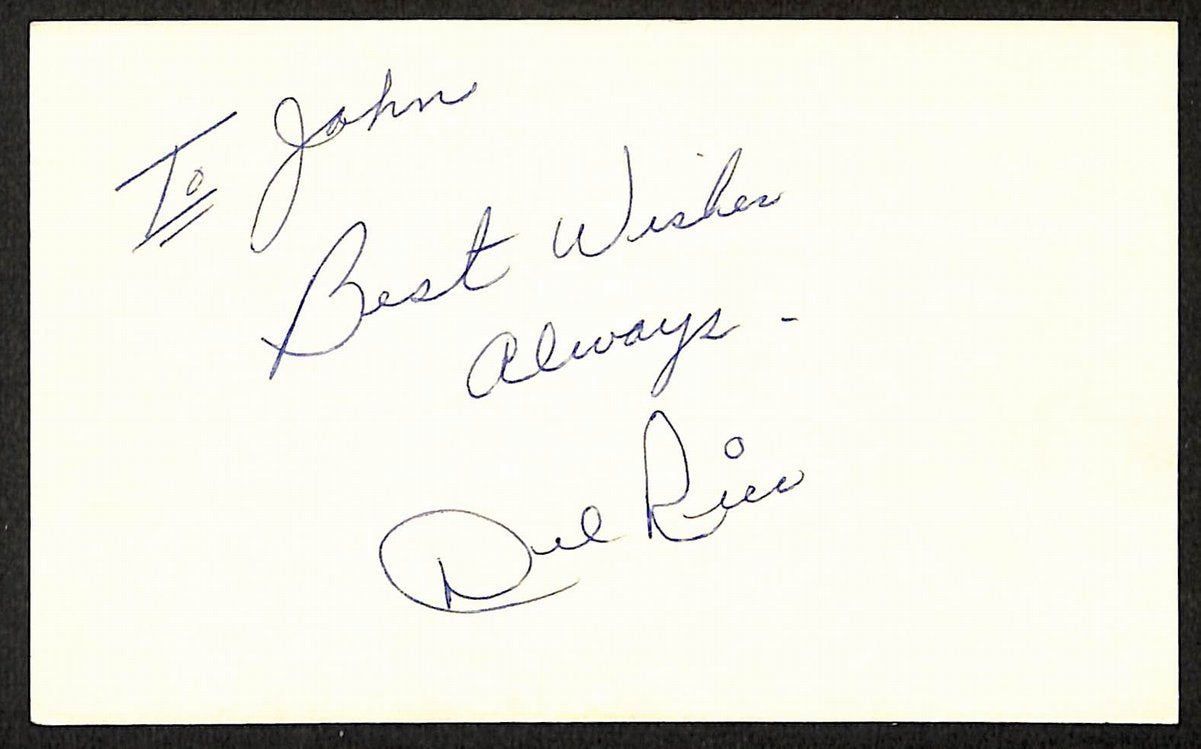 To John
Best Wishes
Always -
Del Rico